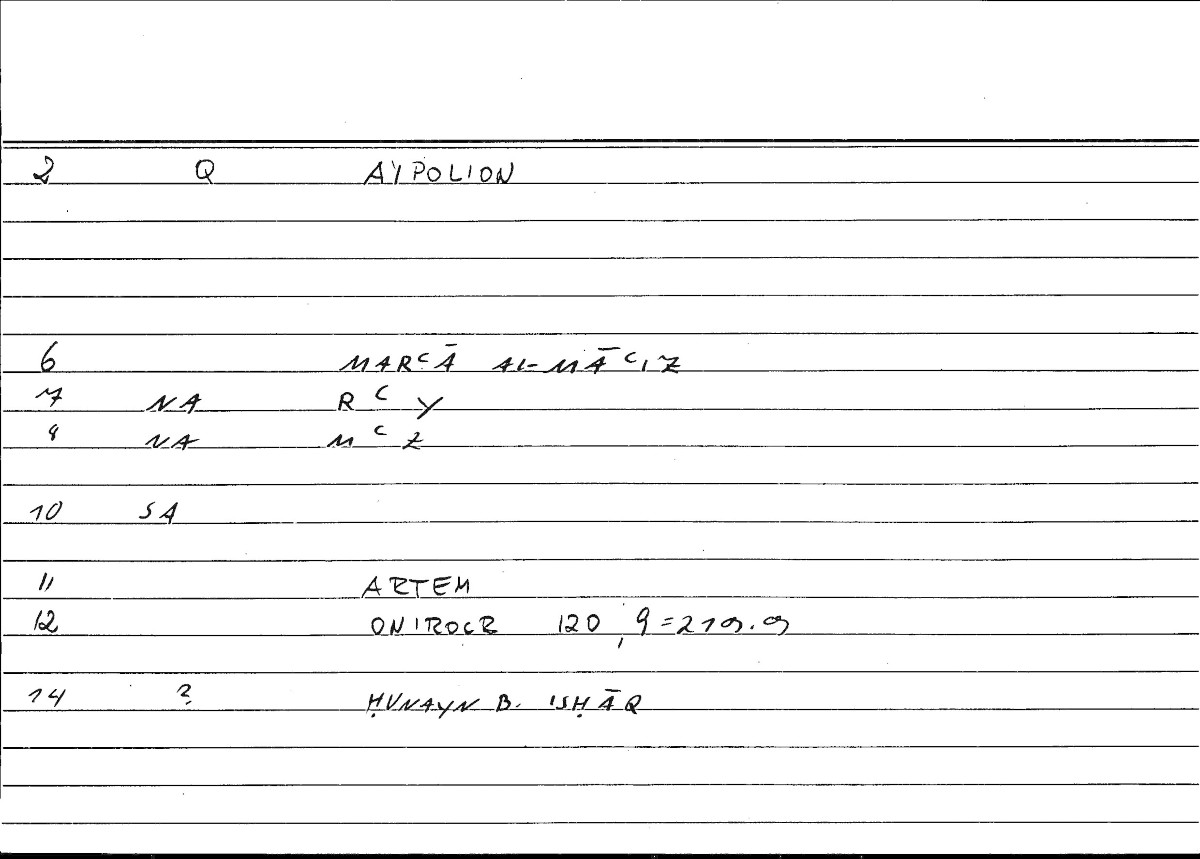 2 Q AIPOLION
6 MARʿĀ AL-MĀʿIZ
7 NA R ʿ Y
8 NA M ʿ Z
10 SA
11 ARTEM
12 ONIROCR 120, 9 = 219.9
14 ? ḤUNAYN B. ISḤĀQ